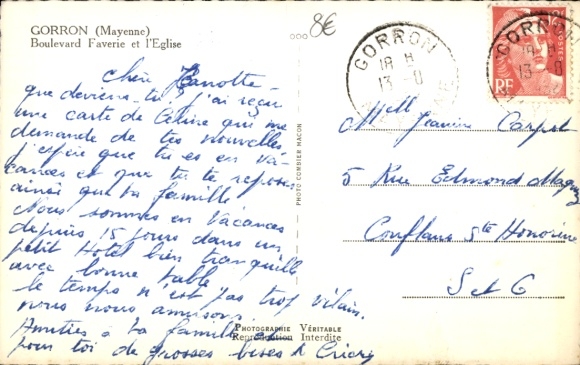 GORRON (Mayenne)
Boulevard Faverie et l'Eglise
8€
Chère Janotte -
que deviens-tu j'ai reçu
une carte de Céline qui me
demande de tes nouvelles
j'espère que tu es en va-
cances et que tu te reposes
ainsi que ta famille
Nous sommes en Vacances
depuis 15 jours dans un
petit Hotel bien tranquille
avec bonne table
le temps n'est pas trop vilain.
nous nous amusons.
Amitiés à ta famille et
pour toi de grosses bises
PHOTO COMBIER MACON
PHOTOGRAPHIE VÉRITABLE
Reproduction Interdite
GORRON
18 H
13 - 8
GORRON
18 H
13 - 8
POSTES
RF
Melle Jeanine Carpel
5 Rue Edmond
Conflans Ste Honorine
S et O